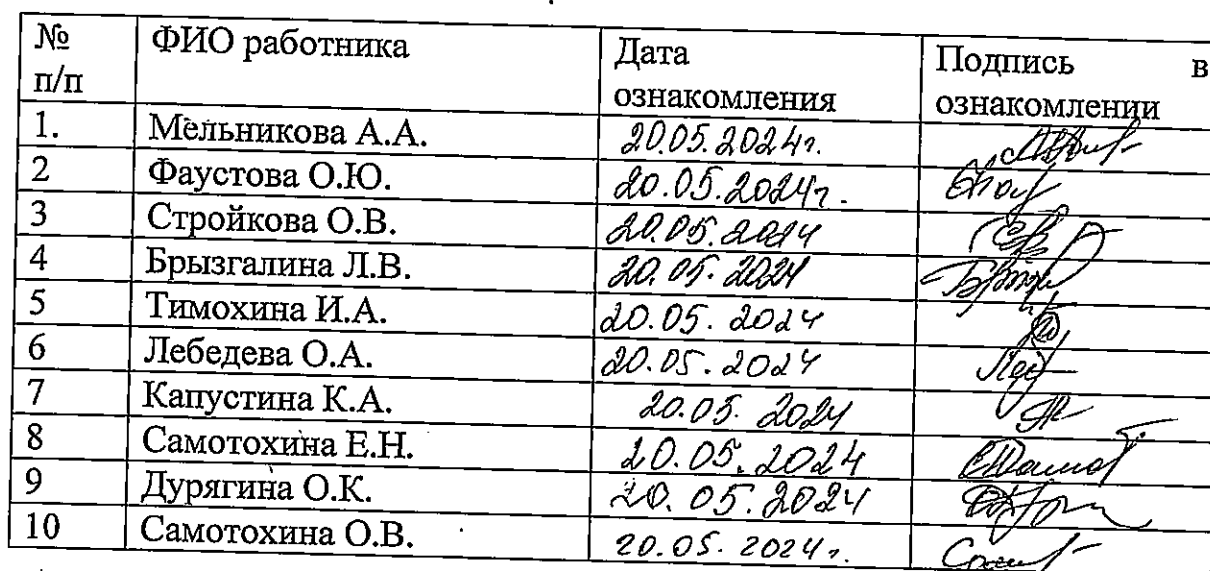 № п/п ФИО работника Дата ознакомления Подпись в ознакомлении
1. Мельникова А.А. 20.05.2024г.
2 Фаустова О.Ю. 20.05.2024г.
3 Стройкова О.В. 20.05.2024
4 Брызгалина Л.В. 20.05.2024
5 Тимохина И.А. 20.05.2024
6 Лебедева О.А. 20.05.2024
7 Капустина К.А. 20.05.2024
8 Самотохина Е.Н. 20.05.2024
9 Дурягина О.К. 20.05.2024
10 Самотохина О.В. 20.05.2024г.